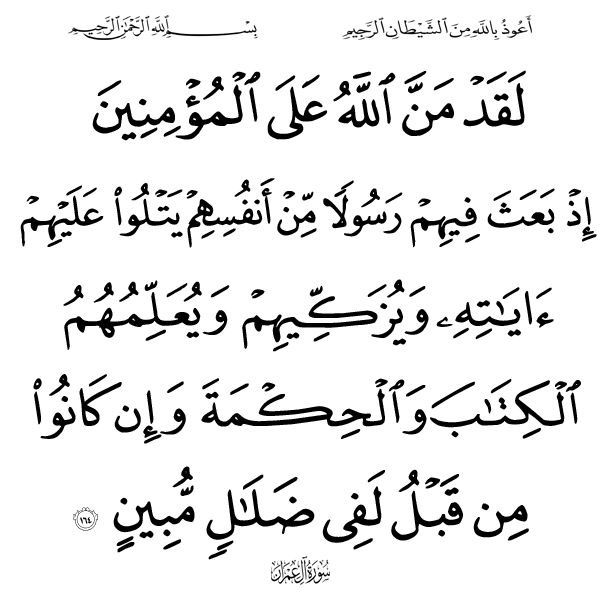 أَعُوذُ بِاللَّهِ مِنَ الشَّيْطَانِ الرَّجِيمِ بِسْمِ ٱللَّهِ الرَّحْمَٰنِ الرَّحِيمِ
لَقَدْ مَنَّ ٱللَّهُ عَلَى ٱلْمُؤْمِنِينَ
إِذْ بَعَثَ فِيهِمْ رَسُولًا مِّنْ أَنفُسِهِمْ يَتْلُوا۟ عَلَيْهِمْ
ءَايَٰتِهِۦ وَيُزَكِّيهِمْ وَيُعَلِّمُهُمُ
ٱلْكِتَٰبَ وَٱلْحِكْمَةَ وَإِن كَانُوا۟
مِن قَبْلُ لَفِى ضَلَٰلٍ مُّبِينٍ ١٦٤
سُورَةُ آلِ عِمْرَانَ